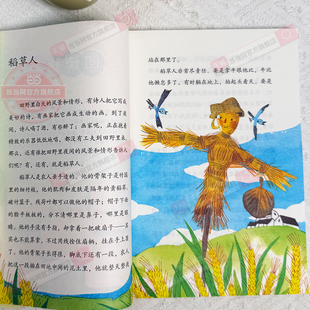 稻草人
田野里白天的风景和情形，有诗人把它写成
美妙的诗，有画家把它画成生动的画。到了夜
间，诗人喝了酒，有些醉了；画家呢，正在抱着
精致的乐器低低地唱，都没有工夫到田野里来。
那么，还有谁把田野里夜间的风景和情形告诉人
们呢？有，还有，就是稻草人。
稻草人是农人亲手造的。他的骨架子是竹园
里的细竹枝，他的肌肉和皮肤是隔年的黄稻草。
破竹篮子、残荷叶都可以做他的帽子；帽子下面
的脸平板板的，分不清哪里是鼻子，哪里是眼
睛。他的手没有手指，却拿着一把破扇子——其
实也不能算拿，不过用线拴住扇柄，挂在手上罢
了。他的骨架子长得很，脚底下还有一段，农人
把这一段插在田地中间的泥土里，他就整天整夜
站在那里了。
稻草人非常尽责任。要是拿牛跟他比，牛比
他懒怠多了，有时躺在地上，抬起头看天。要是